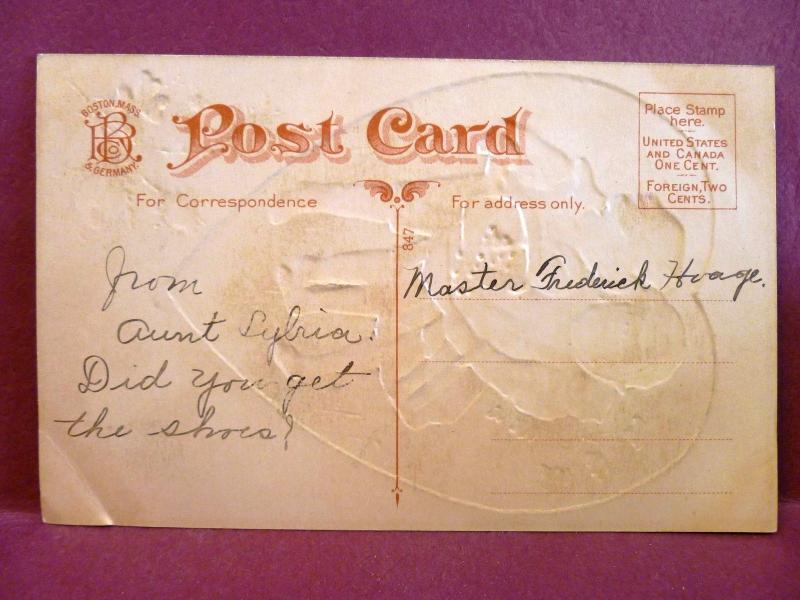 BOSTON, MASS.
& GERMANY.
Post Card
Place Stamp
here.
UNITED STATES
AND CANADA
ONE CENT.
FOREIGN, TWO
CENTS.
For Correspondence
For address only.
847
from
Aunt Sylvia.
Did you get
the shoes?
Master Frederick Hoage.